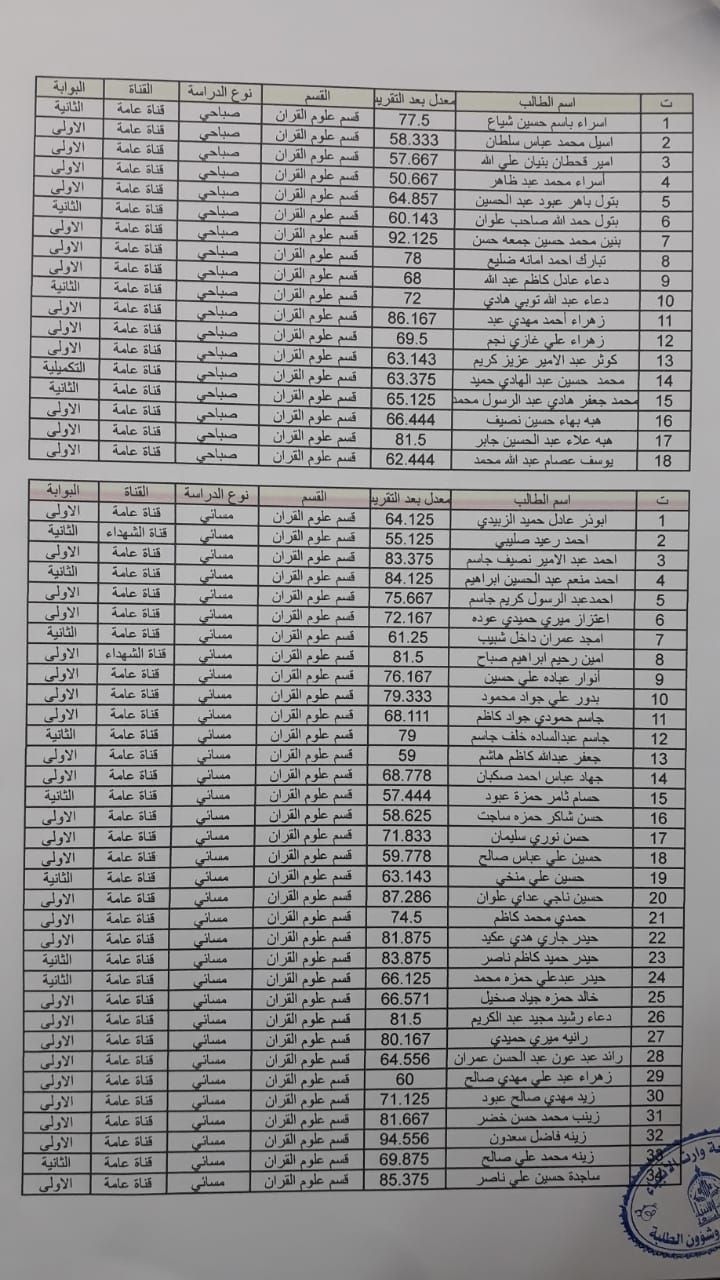 ت اسم الطالب معدل بعد التقريب القسم نوع الدراسة القناة البوابة
1 اسراء باسم حسين شياع 77.5 قسم علوم القران صباحي قناة عامة الثانية
2 اسيل محمد عباس سلطان 58.333 قسم علوم القران صباحي قناة عامة الاولى
3 امير قحطان بنيان علي الله 57.667 قسم علوم القران صباحي قناة عامة الاولى
4 أسراء محمد عبد ظاهر 50.667 قسم علوم القران صباحي قناة عامة الاولى
5 بتول باهر عبود عبد الحسين 64.857 قسم علوم القران صباحي قناة عامة الاولى
6 بتول حمد الله صاحب علوان 60.143 قسم علوم القران صباحي قناة عامة الثانية
7 بنين محمد حسين جمعه حسن 92.125 قسم علوم القران صباحي قناة عامة الاولى
8 تبارك احمد امانه ضليع 78 قسم علوم القران صباحي قناة عامة الاولى
9 دعاء عادل كاظم عبد الله 68 قسم علوم القران صباحي قناة عامة الاولى
10 دعاء عبد الله توبي هادي 72 قسم علوم القران صباحي قناة عامة الثانية
11 زهراء أحمد مهدي عبد 86.167 قسم علوم القران صباحي قناة عامة الاولى
12 زهراء علي غازي نجم 69.5 قسم علوم القران صباحي قناة عامة الاولى
13 كوثر عبد الامير عزيز كريم 63.143 قسم علوم القران صباحي قناة عامة الاولى
14 محمد حسين عبد الهادي حميد 63.375 قسم علوم القران صباحي قناة عامة التكميلية
15 محمد جعفر هادي عبد الرسول محمد 65.125 قسم علوم القران صباحي قناة عامة الثانية
16 هبه بهاء حسين نصيف 66.444 قسم علوم القران صباحي قناة عامة الاولى
17 هبه علاء عبد الحسين جابر 81.5 قسم علوم القران صباحي قناة عامة الاولى
18 يوسف عصام عبد الله محمد 62.444 قسم علوم القران صباحي قناة عامة الاولى
ت اسم الطالب معدل بعد التقريب القسم نوع الدراسة القناة البوابة
1 ابوذر عادل حميد الزبيدي 64.125 قسم علوم القران مسائي قناة عامة الاولى
2 احمد رعيد صليبي 55.125 قسم علوم القران مسائي قناة الشهداء الثانية
3 احمد عبد الامير نصيف جاسم 83.375 قسم علوم القران مسائي قناة عامة الاولى
4 احمد منعم عبد الحسين ابراهيم 84.125 قسم علوم القران مسائي قناة عامة الثانية
5 احمدعبد الرسول كريم جاسم 75.667 قسم علوم القران مسائي قناة عامة الاولى
6 اعتزاز ميري حميدي عوده 72.167 قسم علوم القران مسائي قناة عامة الاولى
7 امجد عمران داخل شبيب 61.25 قسم علوم القران مسائي قناة عامة الثانية
8 امين رحيم ابراهيم صباح 81.5 قسم علوم القران مسائي قناة الشهداء الاولى
9 أنوار عباده علي حسين 76.167 قسم علوم القران مسائي قناة عامة الاولى
10 بدور علي جواد محمود 79.333 قسم علوم القران مسائي قناة عامة الاولى
11 جاسم حمودي جواد كاظم 68.111 قسم علوم القران مسائي قناة عامة الاولى
12 جاسم عبدالساده خلف جاسم 79 قسم علوم القران مسائي قناة عامة الثانية
13 جعفر عبدالله كاظم هاشم 59 قسم علوم القران مسائي قناة عامة الاولى
14 جهاد عباس احمد صكبان 68.778 قسم علوم القران مسائي قناة عامة الاولى
15 حسام ثامر حمزة عبود 57.444 قسم علوم القران مسائي قناة عامة الثانية
16 حسن شاكر حمزه ساجت 58.625 قسم علوم القران مسائي قناة عامة الاولى
17 حسن نوري سليمان 71.833 قسم علوم القران مسائي قناة عامة الاولى
18 حسين علي عباس صالح 59.778 قسم علوم القران مسائي قناة عامة الاولى
19 حسين علي منخي 63.143 قسم علوم القران مسائي قناة عامة الثانية
20 حسين ناجي عداي علوان 87.286 قسم علوم القران مسائي قناة عامة الاولى
21 حمدي محمد كاظم 74.5 قسم علوم القران مسائي قناة عامة الاولى
22 حيدر جاري هدي عكيد 81.875 قسم علوم القران مسائي قناة عامة الاولى
23 حيدر حميد كاظم ناصر 83.875 قسم علوم القران مسائي قناة عامة الثانية
24 حيدر عبدعلي حمزه محمد 66.125 قسم علوم القران مسائي قناة عامة الثانية
25 خالد حمزه جياد صخيل 66.571 قسم علوم القران مسائي قناة عامة الاولى
26 دعاء رشيد مجيد عبد الكريم 81.5 قسم علوم القران مسائي قناة عامة الاولى
27 رانيه ميري حميدي 80.167 قسم علوم القران مسائي قناة عامة الاولى
28 رائد عبد عون عبد الحسن عمران 64.556 قسم علوم القران مسائي قناة عامة الاولى
29 زهراء عبد علي مهدي صالح 60 قسم علوم القران مسائي قناة عامة الاولى
30 زيد مهدي صالح عبود 71.125 قسم علوم القران مسائي قناة عامة الاولى
31 زينب محمد حسن خضر 81.667 قسم علوم القران مسائي قناة عامة الاولى
32 زينه فاضل سعدون 94.556 قسم علوم القران مسائي قناة عامة الاولى
33 زينه محمد علي صالح 69.875 قسم علوم القران مسائي قناة عامة الثانية
34 ساجدة حسين علي ناصر 85.375 قسم علوم القران مسائي قناة عامة الاولى
وارث الانبياء
وشؤون الطلبة